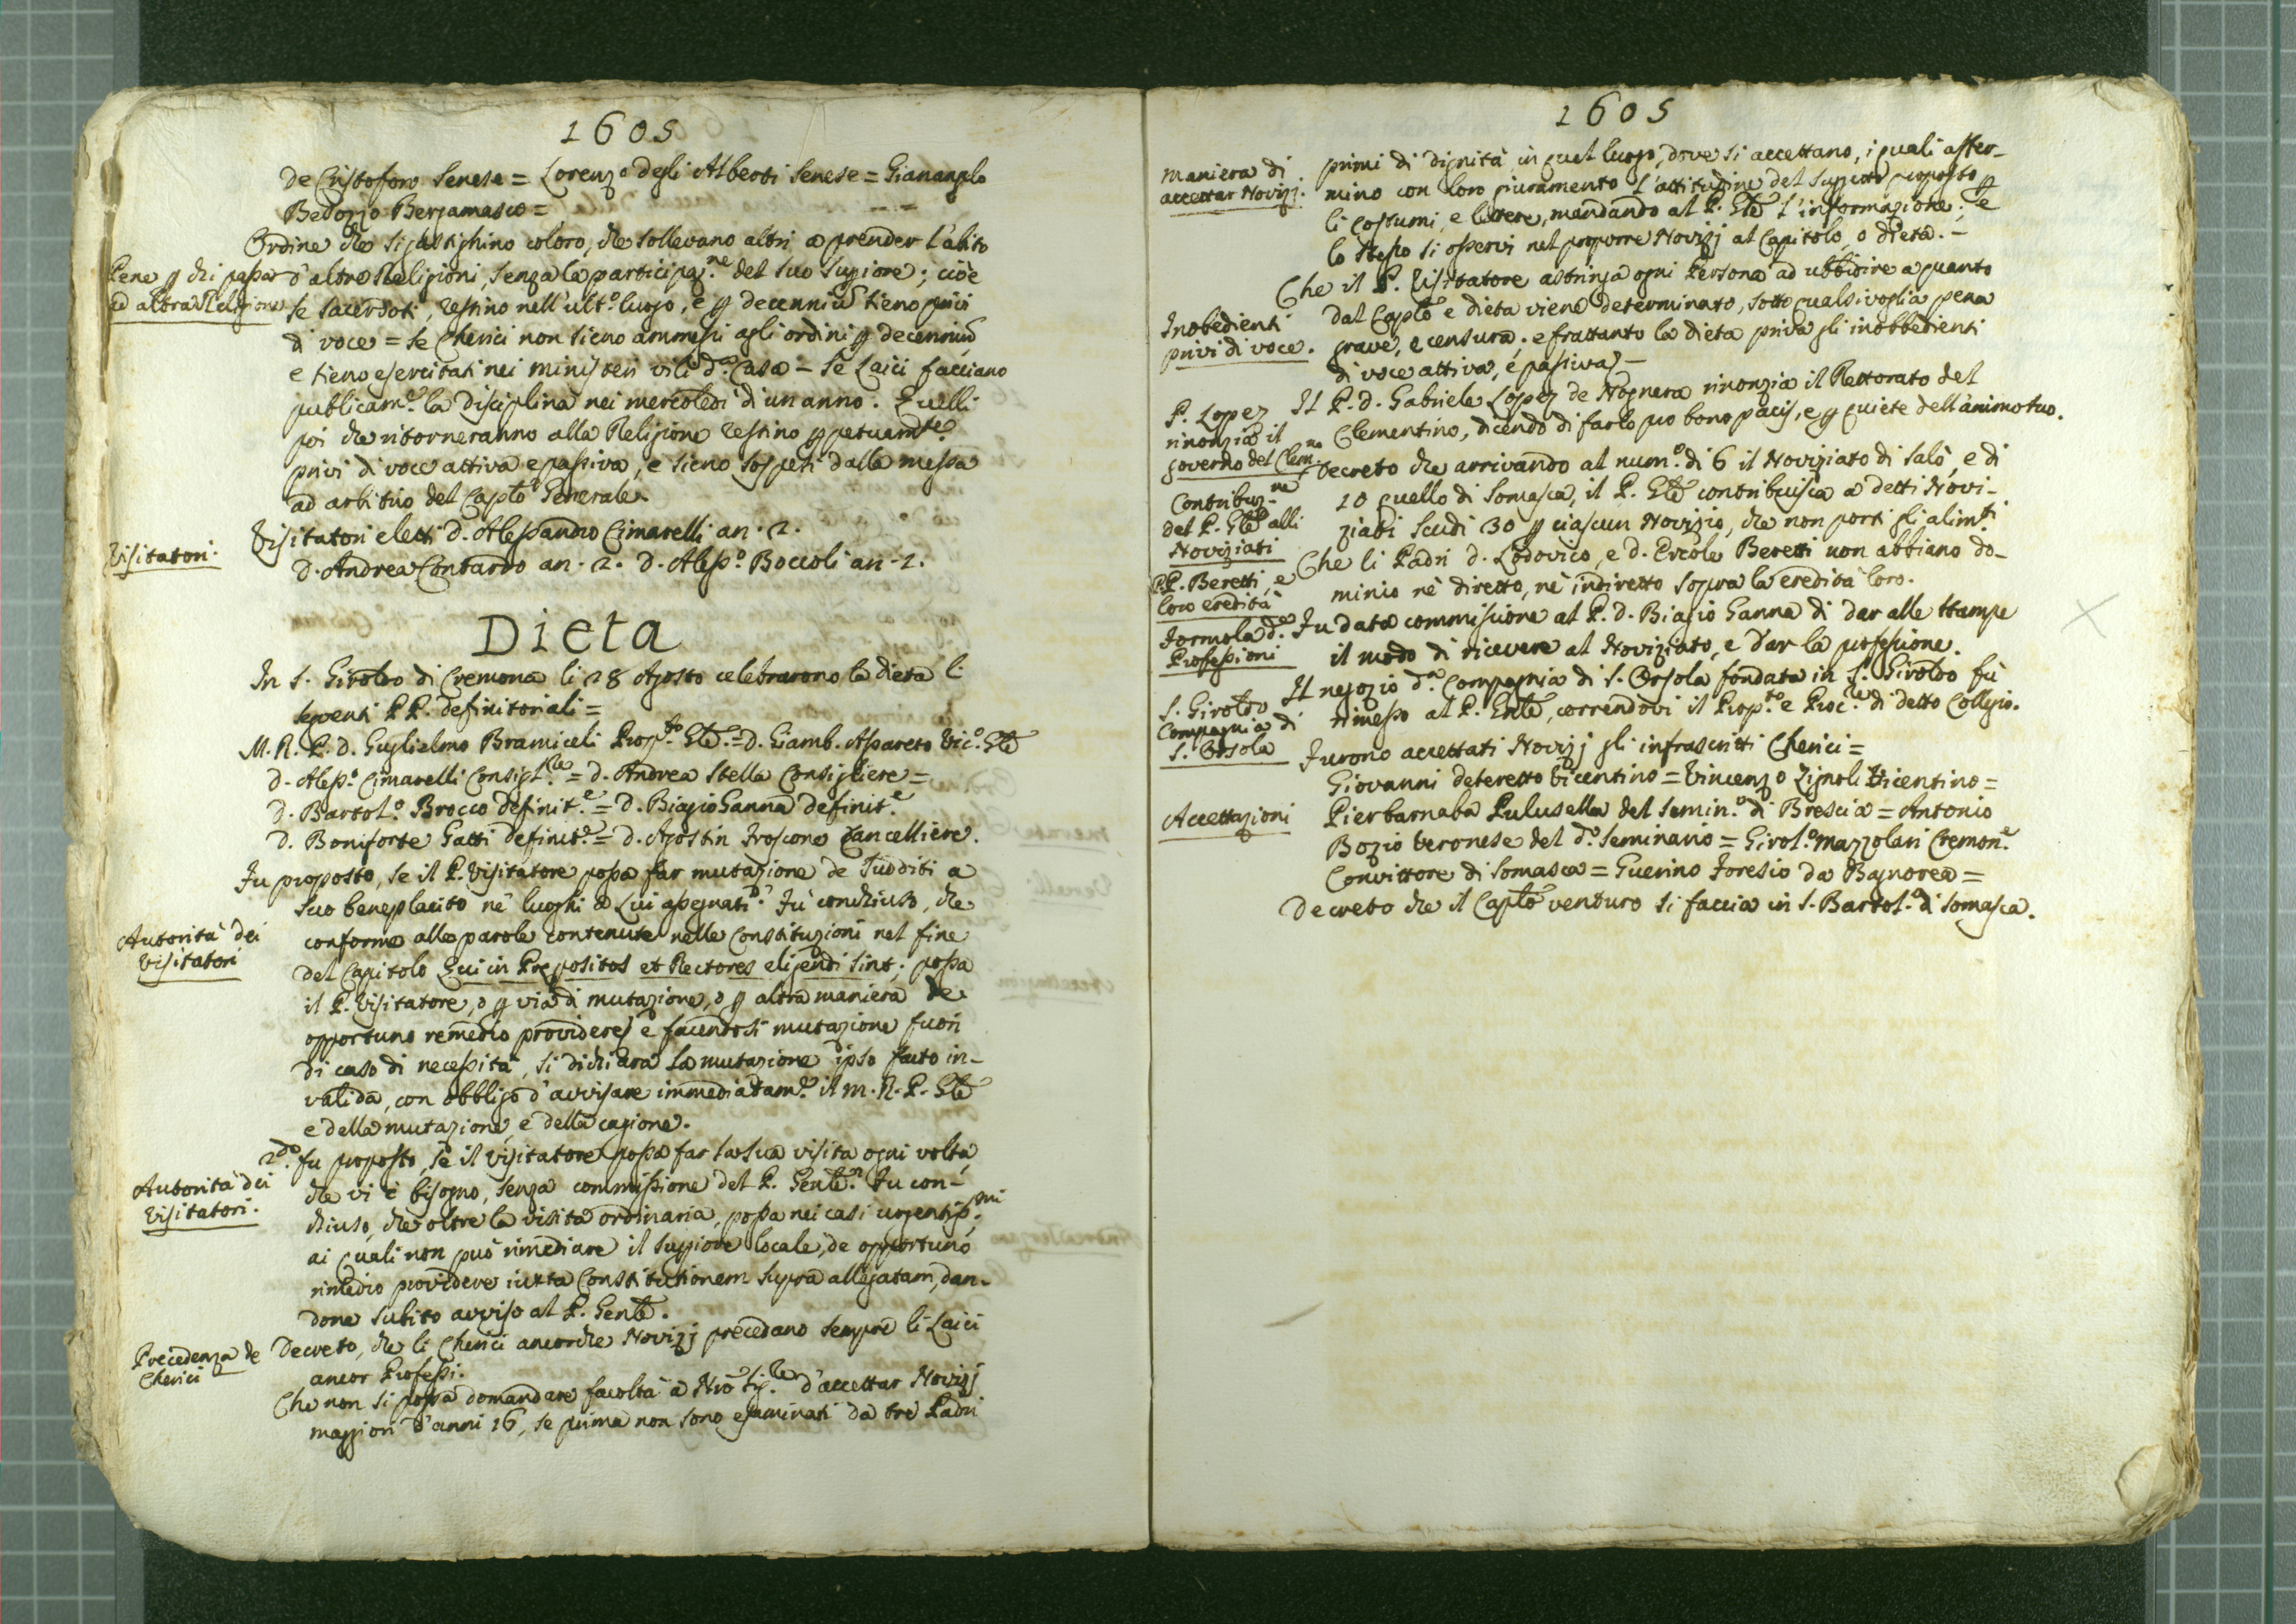 1605
de Cristoforo Senese = Lorenzo degli Alberti Senese = Gianangelo
Bedozjo Bergamasco =
Ordine che si gastighino coloro, che sollevano altri a prender l'abito
Pene p chi passa
ad altra Religione
d'altre Religioni, senza la participaz.ne del suo Supiore; cioè
se Sacerdoti, restino nell'ult.o luogo, e p decenniũ sieno privi
di voce = se Cherici non sieno ammessi agli ordini p decenniũ
e sieno esercitati nei ministeri vili d.a Casa = Se Laici facciano
publicam.e la disciplina nei mercoledì di un anno. Quelli
poi che ritorneranno alla Religione restino ppetuamte
privi di voce attiva e passiva, e sieno sospesi dalla messa
ad arbitrio del Caplo Generale.
Visitatori.
Visitatori eletti D. Alessandro Cimarelli an. 2.
D. Andrea Contardo an. 2. D. Aless.o Boccoli an. 1.
Dieta
In S. Giroldo di Cremona li 28 Agosto celebrarono la dieta li
seguenti PP. definitoriali =
M. R. P. D. Guglielmo Bramiceli Prop.to Gle. = D. Giamb. Assareto Vic.o Gle
D. Aless.o Cimarelli Consigl.re = D. Andrea Stella Consigliere =
D. Bartol.o Brocco definit.e = D. Biagio Ganna definit.e
D. Boniforte Gatti definit.e = D. Agostin Froscone Cancelliere.
Fu proposto, se il P. Visitatore possa far mutazione de Sudditi a
suo beneplacito nè luoghi a Lui assegnati? Fù conchiuso, che
Autorità dei
Visitatori
conforme alle parole contenute nelle Constituzioni nel fine
del Capitolo Qui in Prepositos et Rectores eligendi sint; possa
il P. Visitatore, o p via di mutazione, o p altra maniera de
opportuno remedio providere; e facendosi mutazione fuori
di caso di necessità, si dichiara la mutazione ipso facto in-
valida, con obbligo d'avvisare immediatam.e il M. R. P. Gle
e della mutazione e della cagione.
2.do fu proposto, se il Visitatore possa far la sua visita ogni volta,
Autorità dei
Visitatori.
che vi è bisogno, senza commissione del P. Genle? Fu con-
chiuso, che oltre la visita ordinaria, possa nei casi urgentiss.mi
ai quali non può rimediare il Supiore locale, de opportuno
rimedio providere iuxta Constitutionem supra allegatam, dan-
done subito avviso al P. Genle.
Precedenza de
Cherici
Decreto, che li Cherici ancorche Novizj precedano sempre li Laici
ancor Professi.
Che non si possa domandare facoltà a Nrõ Sig.re d'accettar Novizj
maggiori d'anni 16, se prima non sono esaminati da tre Padri
1605
maniera di
accettar Novizj.
primi di dignità in quel luogo, dove si accettano, i quali affer-
mino con loro giuramento l'attitudine del suggetto proposto p
li costumi, e lettere, mandando al P. Gle l'informazione; e
lo stesso si osservi nel proporre Novizj al Capitolo, o dieta. -
Che il P. Visitatore astringa ogni Persona ad ubbidire a quanto
Inobedienti
privi di voce.
dal Caplo e dieta viene determinato, sotto qualsivoglia pena
grave, e censura; e frattanto la dieta priva gli inobbedienti
di voce attiva, e passiva. -
P. Lopez
rinonzia il
governo del Clem.no
Il P. D. Gabriele Lopez de Nognera rinonzia il Rettorato del
Clementino, dicendo di farlo pro bono pacis, e p quiete dell'animo suo.
Contribuz.ne
del P. Gle alli
Noviziati
Decreto che arrivando al num.o di 6 il Noviziato di Salò, e di
10 quello di Somasca, il P. Gle contribuisca a detti Novi-
ziati Scudi 30 p ciascun Novizio, che non porti gli alim.ti
PP. Beretti, e
loro eredità
Che li Padri D. Lodovico, e D. Ercole Beretti non abbiano do-
minio nè diretto, nè indiretto sopra la eredità loro.
Formola d.a
Professioni
Fu data commissione al P. D. Biagio Ganna di dar alle stampe
il modo di ricevere al Noviziato, e dar la professione.
S. Giroldo
Compagnia di
S. Orsola
Il negozio d.a Compagnia di S. Orsola fondata in S. Giroldo fù
rimesso al P. Genle, correndovi il Prop.to e Proc.re di detto Collegio.
Furono accettati Novizj gli infrascritti Cherici =
Giovanni deteretto Vicentino = Vincenzo Zignoli Vicentino =
Accettazioni
Pierbarnaba Pulusella del Semin.o di Brescia = Antonio
Bozio Veronese del d.o Seminario = Girol.o Mazzolari Cremon.e
Convittore di Somasca = Guerino Foresio da Bagnorea =
Decreto che il Caplo venturo si faccia in S. Bartol.o di Somasca.